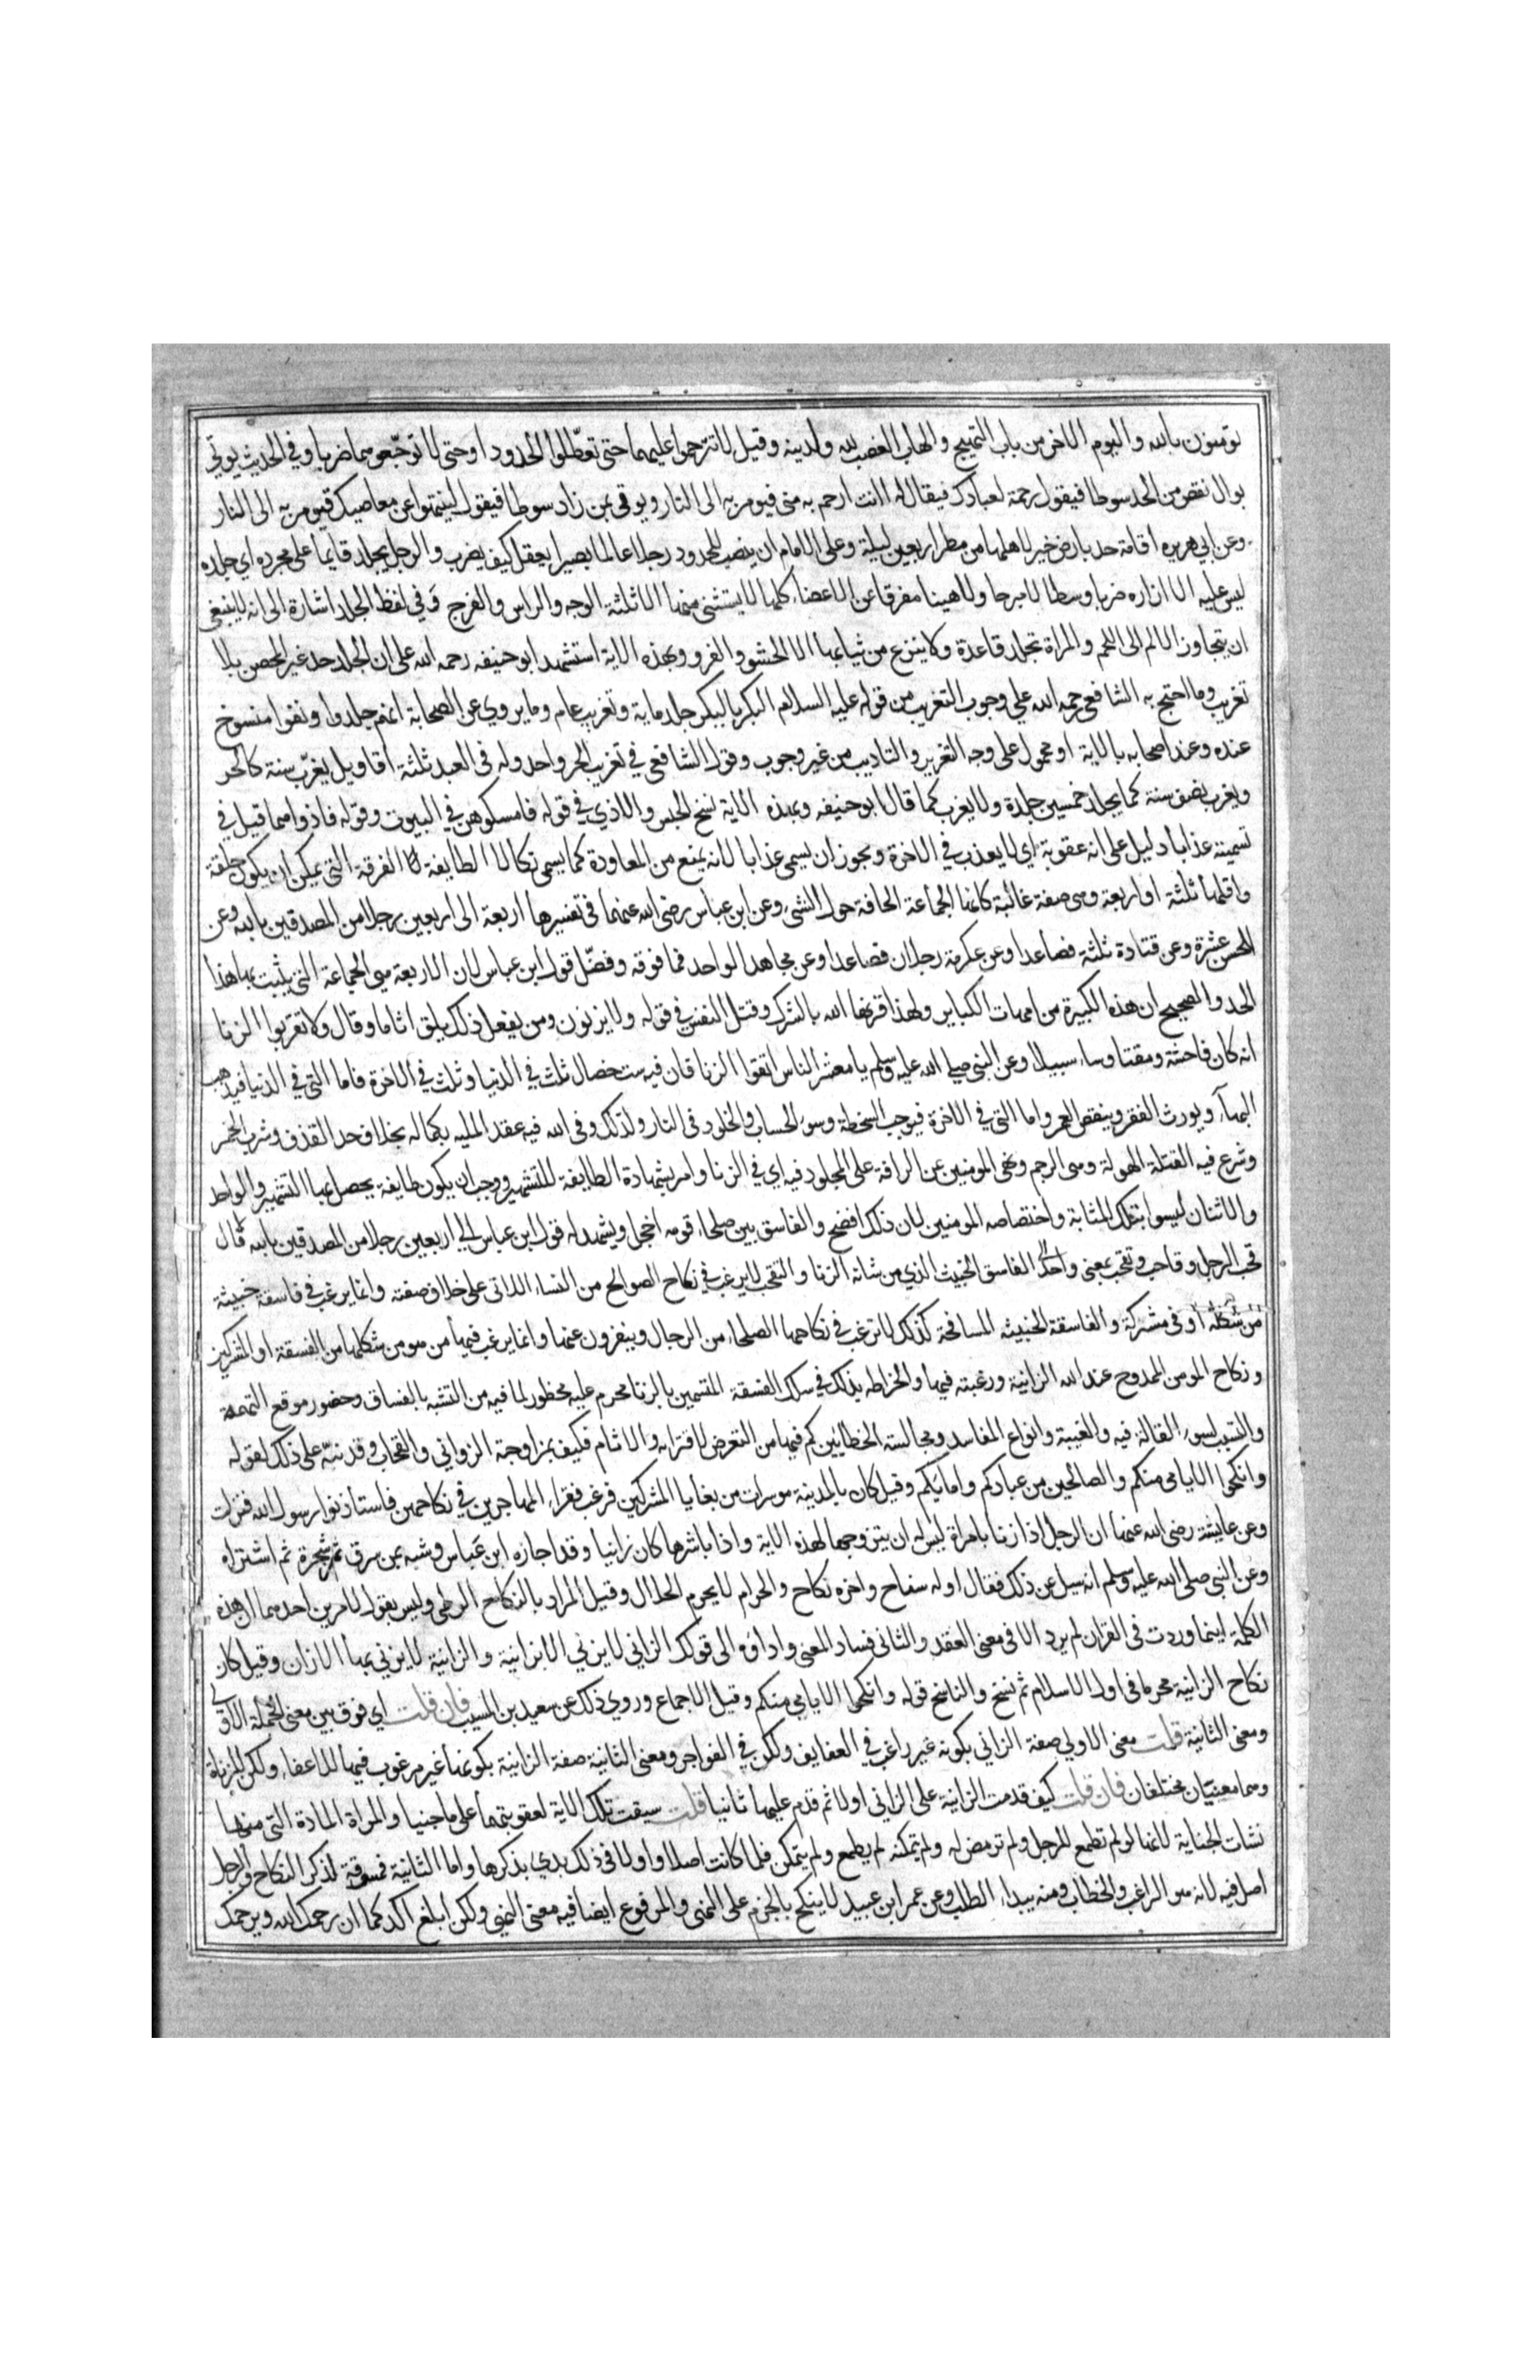 تومنون بالله واليوم الاخر من باب التهييج والهاب الغضب لله ولدينه وقيل لا تترحموا عليهما حتى تعطلوا الحدود او حتى لا توجعوهما ضربا وفي الحديث يوتي
بوال نقص من الحد سوطا فيقول رحمة لعبادك فيقال له اانت ارحم به مني فيومر به الى النار ويوتى بمن زاد سوطا فيقول لينتهوا عن معاصيك فيومر به الى النار
وعن ابي هريره اقامة حد بارض خير لاهلها من مطر اربعين ليلة وعلى الامام ان ينصب للحدود رجلا عالما بصيرا يعقل كيف يضرب والرجل يجلد قايما على مجرده اي جلده
ليس عليه الا ازاره ضربا وسطا لا مبرحا ولا هينا مفرقا عن الاعضاء كلها لا يستثنى منها الا ثلثة الوجه والراس والفرج وفي لفظ الجلد اشارة الى انه لا ينبغي
ان يتجاوز الالم الى اللحم والمراة تجلد قاعدة ولا ينزع من ثيابها الا الحشو والفرو وبهذه الاية استشهد ابو حنيفه رحمه الله على ان الجلد حد غير المحصن بلا
تغريب وما احتج به الشافعي رحمه الله على وجوب التغريب من قوله عليه السلام البكر بالبكر جلد ماية وتغريب عام وما يروي عن الصحابة انهم جلدوا ونفوا منسوخ
عنده وعند اصحابه بالاية او محمول على وجه التعزير والتاديب من غير وجوب وقول الشافعي في تغريب الحر واحد وله في العبد ثلثة اقاويل يغرب سنة كالحر
ويغرب نصف سنة كما يجلد خمسين جلدة ولا يغرب كما قال ابو حنيفه وبهذه الاية نسخ الحبس والاذي في قوله فامسكوهن في البيوت وقوله فاذوهما قيل في
تسميته عذابا دليل على انه عقوبة اي لا يعذب في الاخرة ويجوز ان يسمى عذابا لانه يمنع من المعاودة كما يسمى نكالا الطايفة الفرقة التي يمكن ان يكون حلقة
واقلها ثلثة او اربعة وهي صفة غالبة كانها الجماعة الحافة حول الشيء وعن ابن عباس رضي الله عنهما في تفسيرها اربعة الى اربعين رجلا من المصدقين بالله وعن
الحسن عشرة وعن قتادة ثلثة فصاعدا وعن عكرمة رجلان فصاعدا وعن مجاهد الواحد فما فوقه وفضل قول ابن عباس لان الاربعة هي الجماعة التي يثبت بها هذا
الحد والصحيح ان هذه الكبيرة من امهات الكباير ولهذا قرنها الله بالشرك وقتل النفس في قوله ولا يزنون ومن يفعل ذلك يلق اثاما وقال ولا تقربوا الزنا
انه كان فاحشة ومقتا وساء سبيلا وعن النبي صلى الله عليه وسلم يا معشر الناس اتقوا الزنا فان فيه ست خصال ثلث في الدنيا وثلث في الاخرة فاما التي في الدنيا فيذهب
البهاء ويورث الفقر وينقص العمر واما التي في الاخرة فيوجب السخطة وسوء الحساب والخلود في النار ولذلك وفى الله فيه عقد المايه بكماله بخلاف حد القذف وشرب الخمر
وشرع فيه القتلة الهولة وهي الرجم ونهي المومنين عن الرافة على المجلود فيه اي في الزنا وامر بشهادة الطايفة للتشهير ووجب ان يكون طايفة يحصل بها التشهير والواحد
والاثنان ليسوا بتلك المثابة واختصاصه المومنين لان ذلك افضح والفاسق بين صلحاء قومه اخجل ويشهد له قول ابن عباس الى اربعين رجلا من المصدقين بالله قال
قحب الرجل وقاحب وتقحب بمعنى واحد الفاسق الخبيث الذي من شانه الزنا والتقحب لا يرغب في نكاح الصوالح من النساء اللاتى على خلاف صفته وانما يرغب في فاسقة خبيثة
من شكله او في مشركة والفاسقة الخبيثه المسافحة كذلك لا ترغب في نكاحها الصلحاء من الرجال وينفرون عنها وانما يرغب فيها من هو من شكلها من الفسقة او المشركين
ونكاح المومن الممدوح عند الله الزانية ورغبته فيها وانخراطه بذلك في سلك الفسقة المتسمين بالزنا محرم عليه محظور لما فيه من التشبه بالفساق وحضور موقع التهمة
والتسبب لسوء القالة فيه والغيبة وانواع المفاسد ومجالسته الخطايين كم فيها من التعرض لاقتراف الاثام فكيف بمزاوجة الزواني والقحاب وقد نبه على ذلك لقوله
وانكحوا الايامى منكم والصالحين من عبادكم وامائكم وقيل كان بالمدينة موسرات من بغايا المشركين فرغب فقراء المهاجرين في نكاحهن فاستاذنوا رسول الله فنزلت
وعن عايشة رضي الله عنها ان الرجل اذا زنا بامراة ليس له ان يتزوجها لهذه الاية واذا باشرها كان زانيا وقد اجازه ابن عباس وشبه بمن سرق ثمر شجرة ثم اشتراه
وعن النبي صلى الله عليه وسلم انه سيل عن ذلك فقال اوله سفاح واخره نكاح والحرام لا يحرم الحلال وقيل المراد بالنكاح الوطي وليس بقول لامرين احدهما ان هذه
الكلمة اينما وردت في القران لم يرد الا في معنى العقد والثاني فساد المعنى واداؤه الى قولك الزاني لا يزني الا بزانية والزانية لا يزني بها الا زان وقيل كان
نكاح الزانية محرما في اول الاسلام ثم نسخ والناسخ قوله وانكحوا الايامي منكم وقيل الاجماع وروي ذلك عن سعيد بن المسيب فان قلت اي فرق بين معنى الجملة الاولى
ومعنى الثانية قلت معنى الاولي صفة الزاني بكونه غير راغب في العفايف ولكن في الفواجر ومعنى الثانية صفة الزانية بكونها غير مرغوب فيها للاعفاء ولكن للزناة
وهما معنيان مختلفان فان قلت كيف قدمت الزانية على الزاني اولا ثم قدم عليها ثانيا قلت سيقت تلك الاية لعقوبتهما على ما جنيا والمراة المادة التي منها
نشات الجناية لانها لو لم تطمع للرجل ولم تومض له ولم تمكنه لم يطمع ولم يتمكن فلما كانت اصلا واولا في ذلك بدي بذكرها واما الثانية فمسوقة لذكر النكاح والرجل
اصل فيه لانه هو الراغب والخطاب ومنه يبداء الطلب وعن عمر ابن عبيد لا ينكح بالجزم على النهي والمرفوع ايضا فيه معنى النهي ولكن ابلغ اكد كما ان رحمك الله ويرحمك